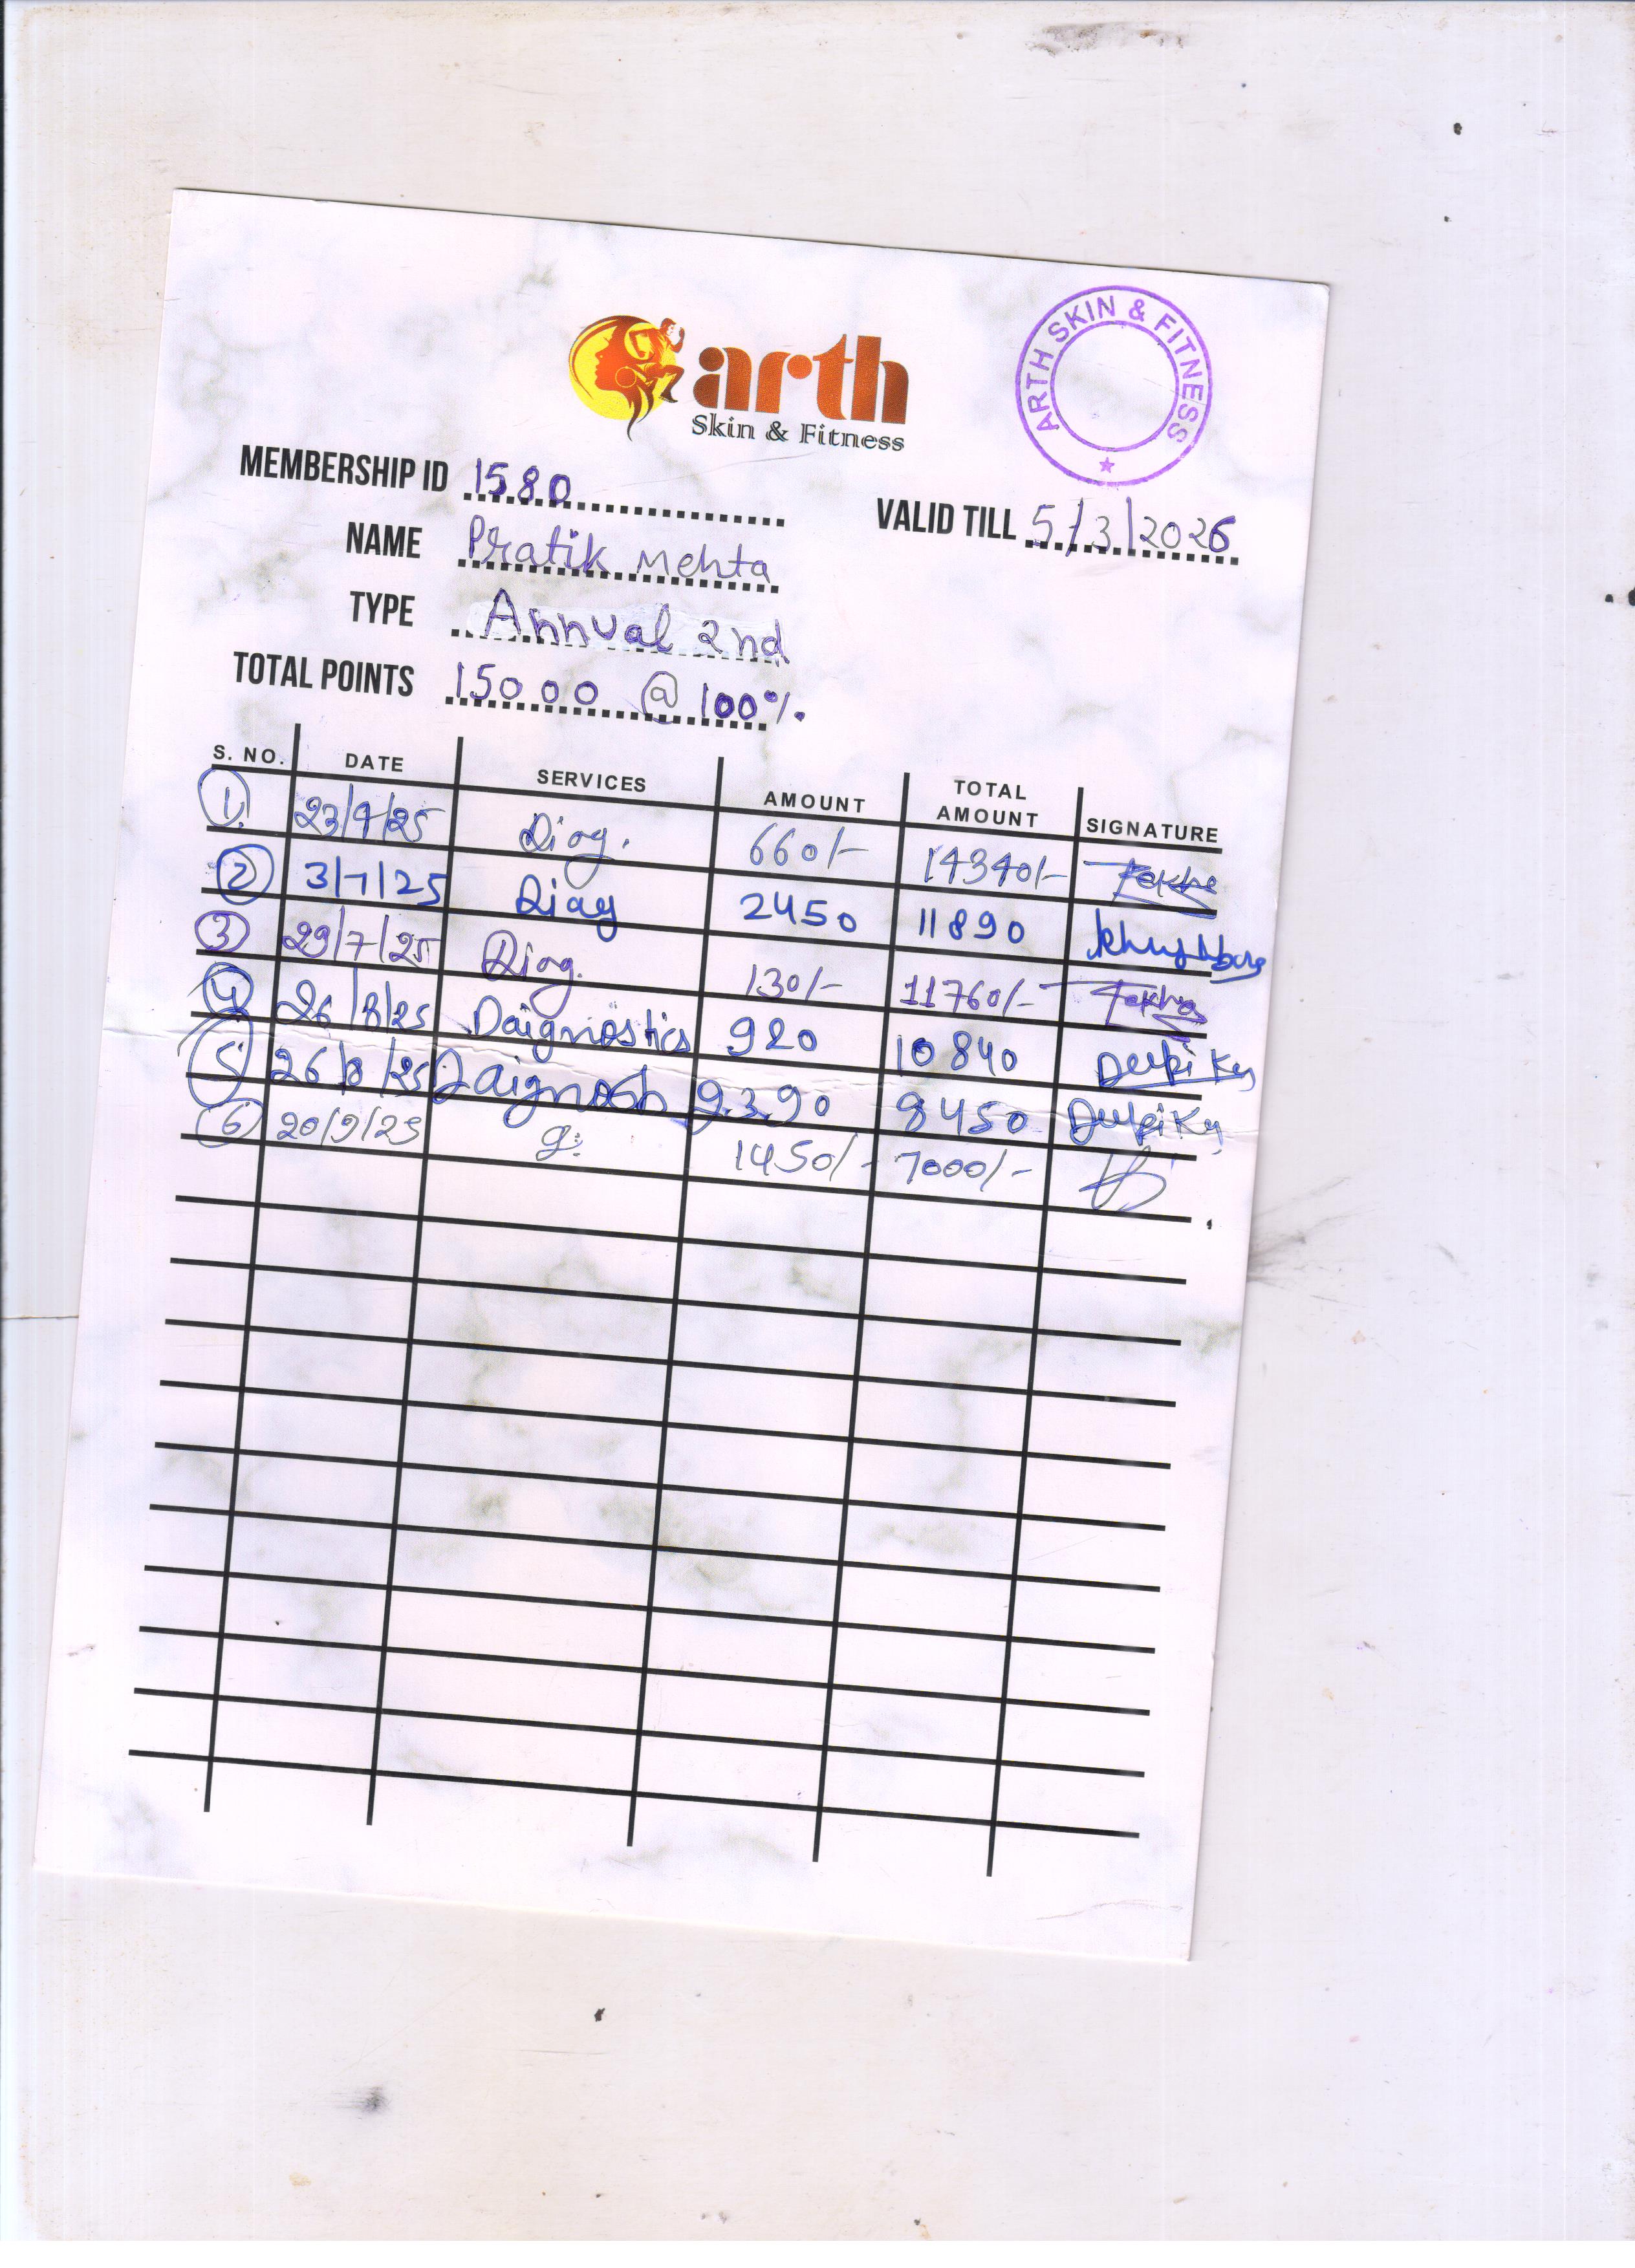 arth
Skin & Fitness
ARTH SKIN & FITNESS
MEMBERSHIP ID 1580
VALID TILL 5/3/2026
NAME Pratik Mehta
TYPE Annual 2nd
TOTAL POINTS 15000 @ 100%.
S. NO. DATE SERVICES AMOUNT TOTAL AMOUNT SIGNATURE
1. Diag. 660/- 14340/-
2 3/7/25 Diag 2450 11890
3 29/7/25 Diag. 130/- 11760/-
4 26/8/25 Daignostics 920 10840
5 26/8/25 2390 8450
6 20/9/25 1450/- 7000/-